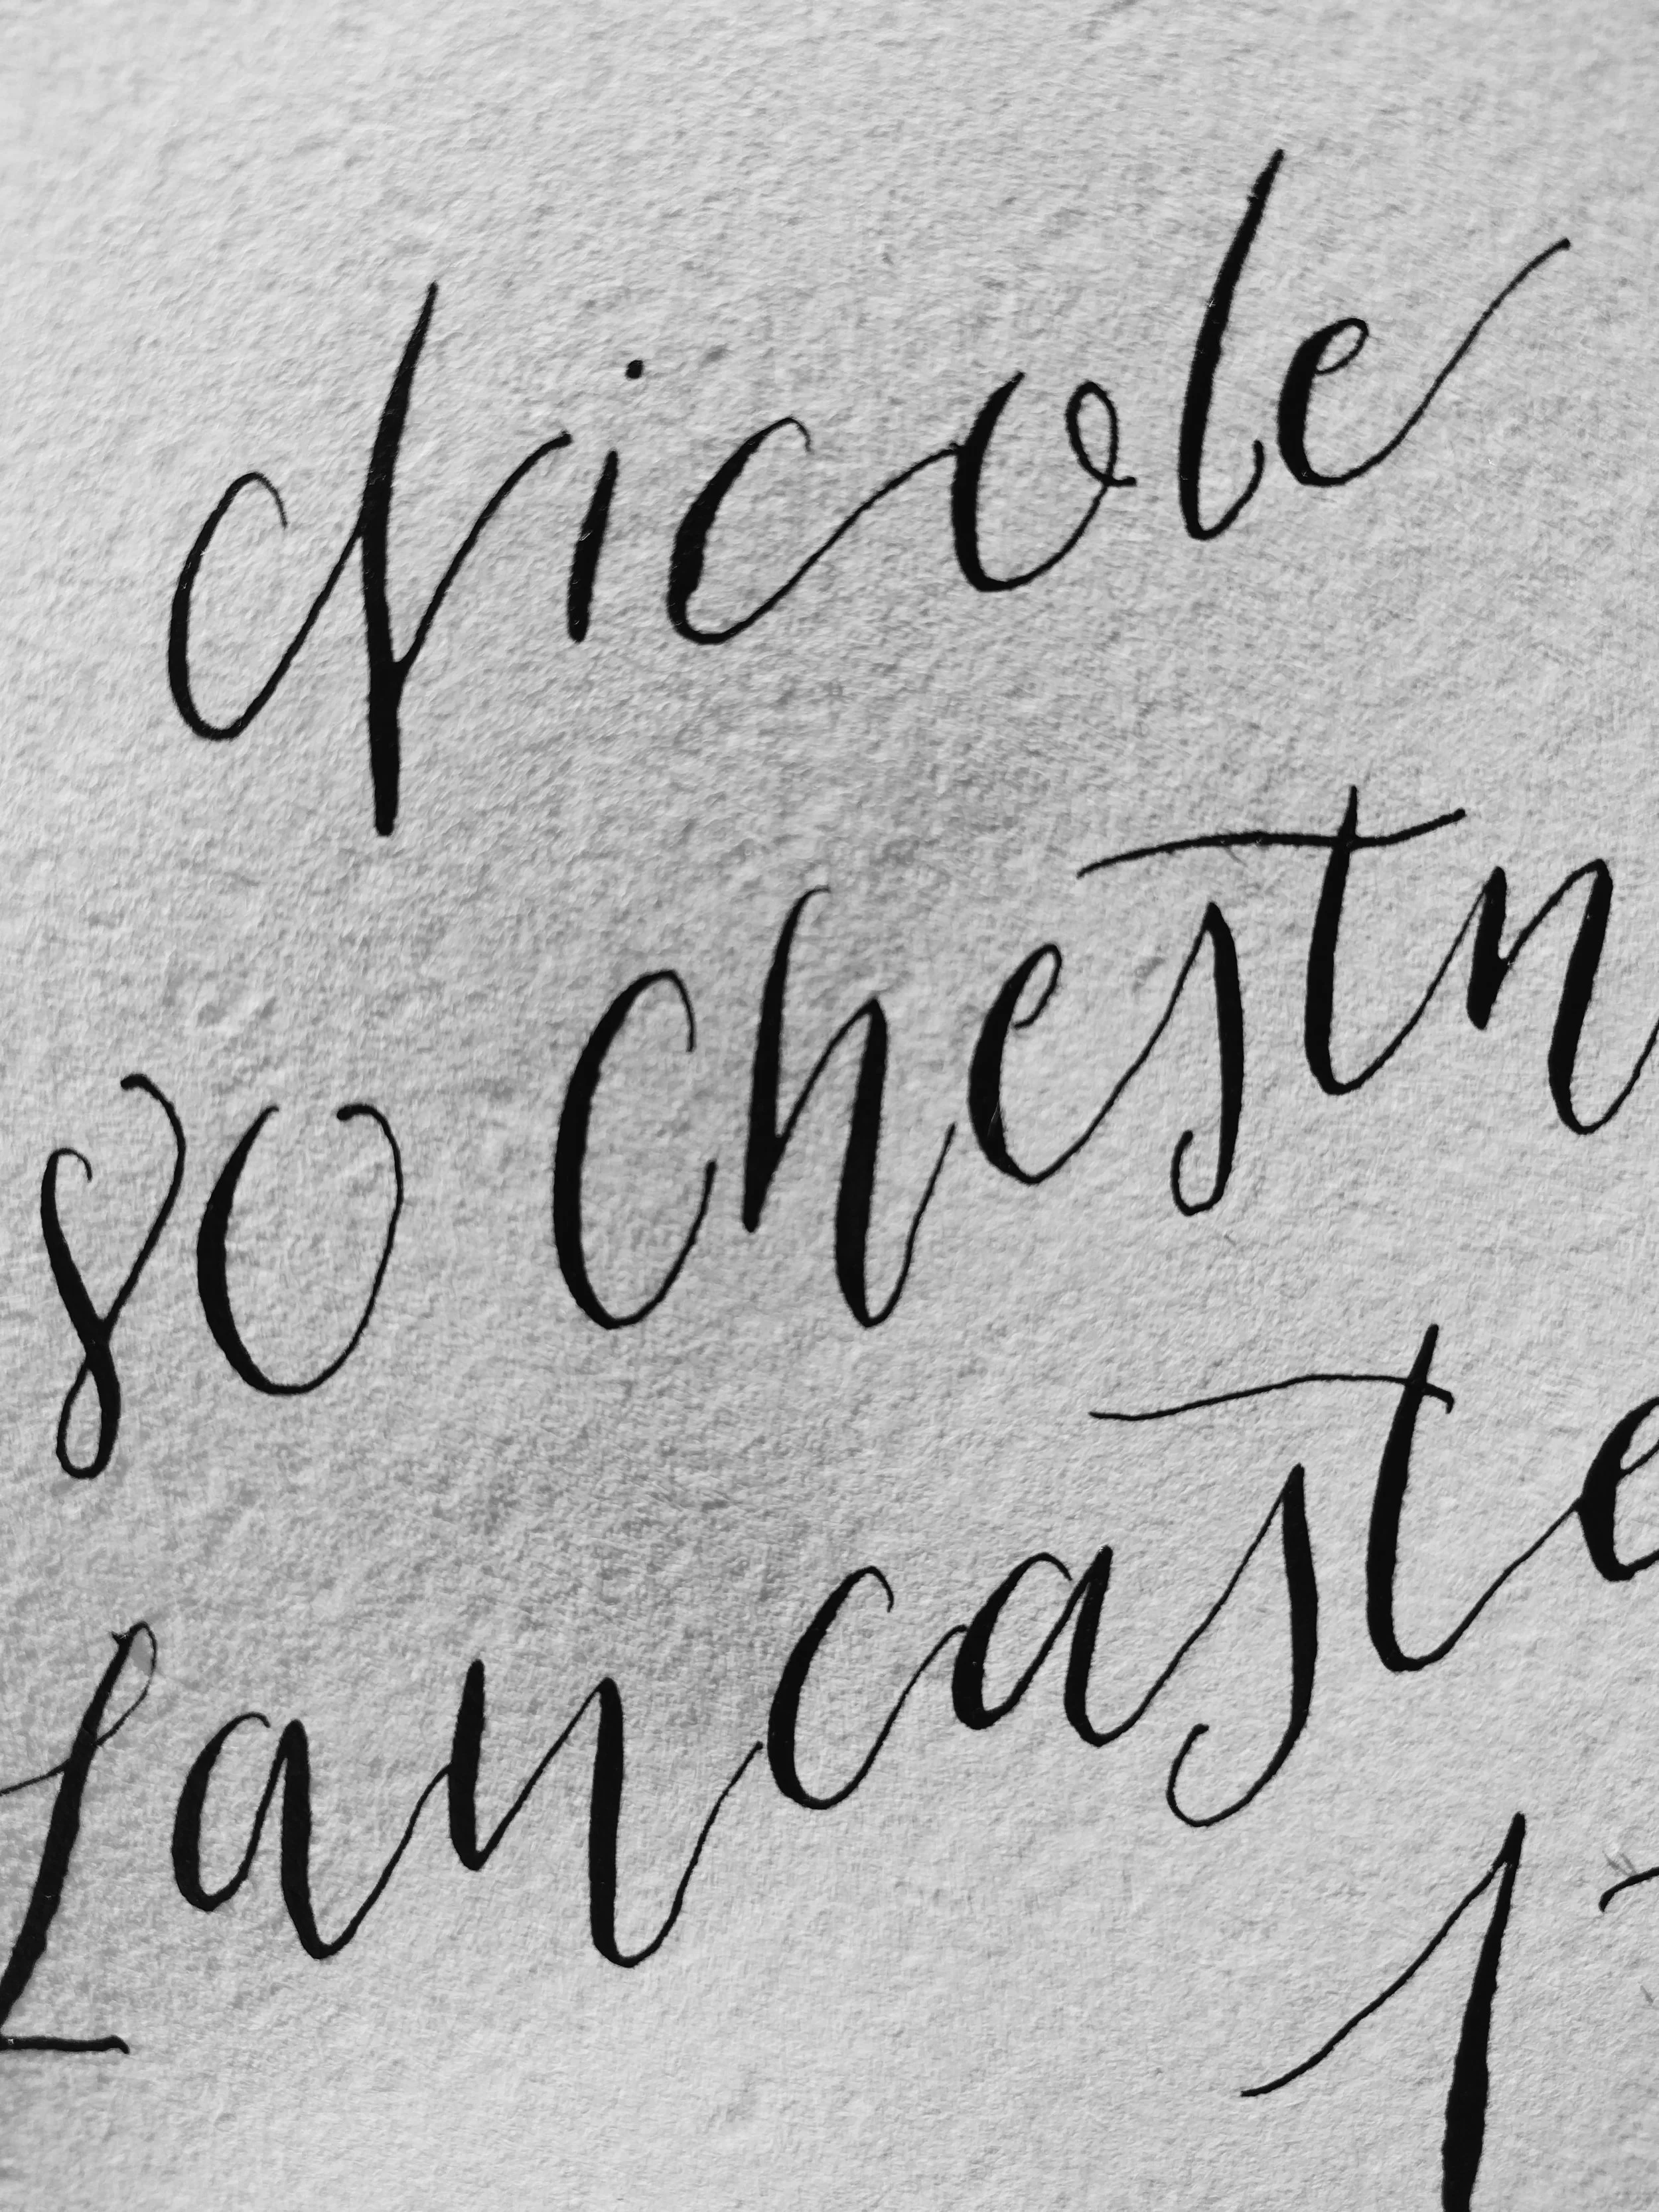 Nicole
80 Chestn
Lancaste
1